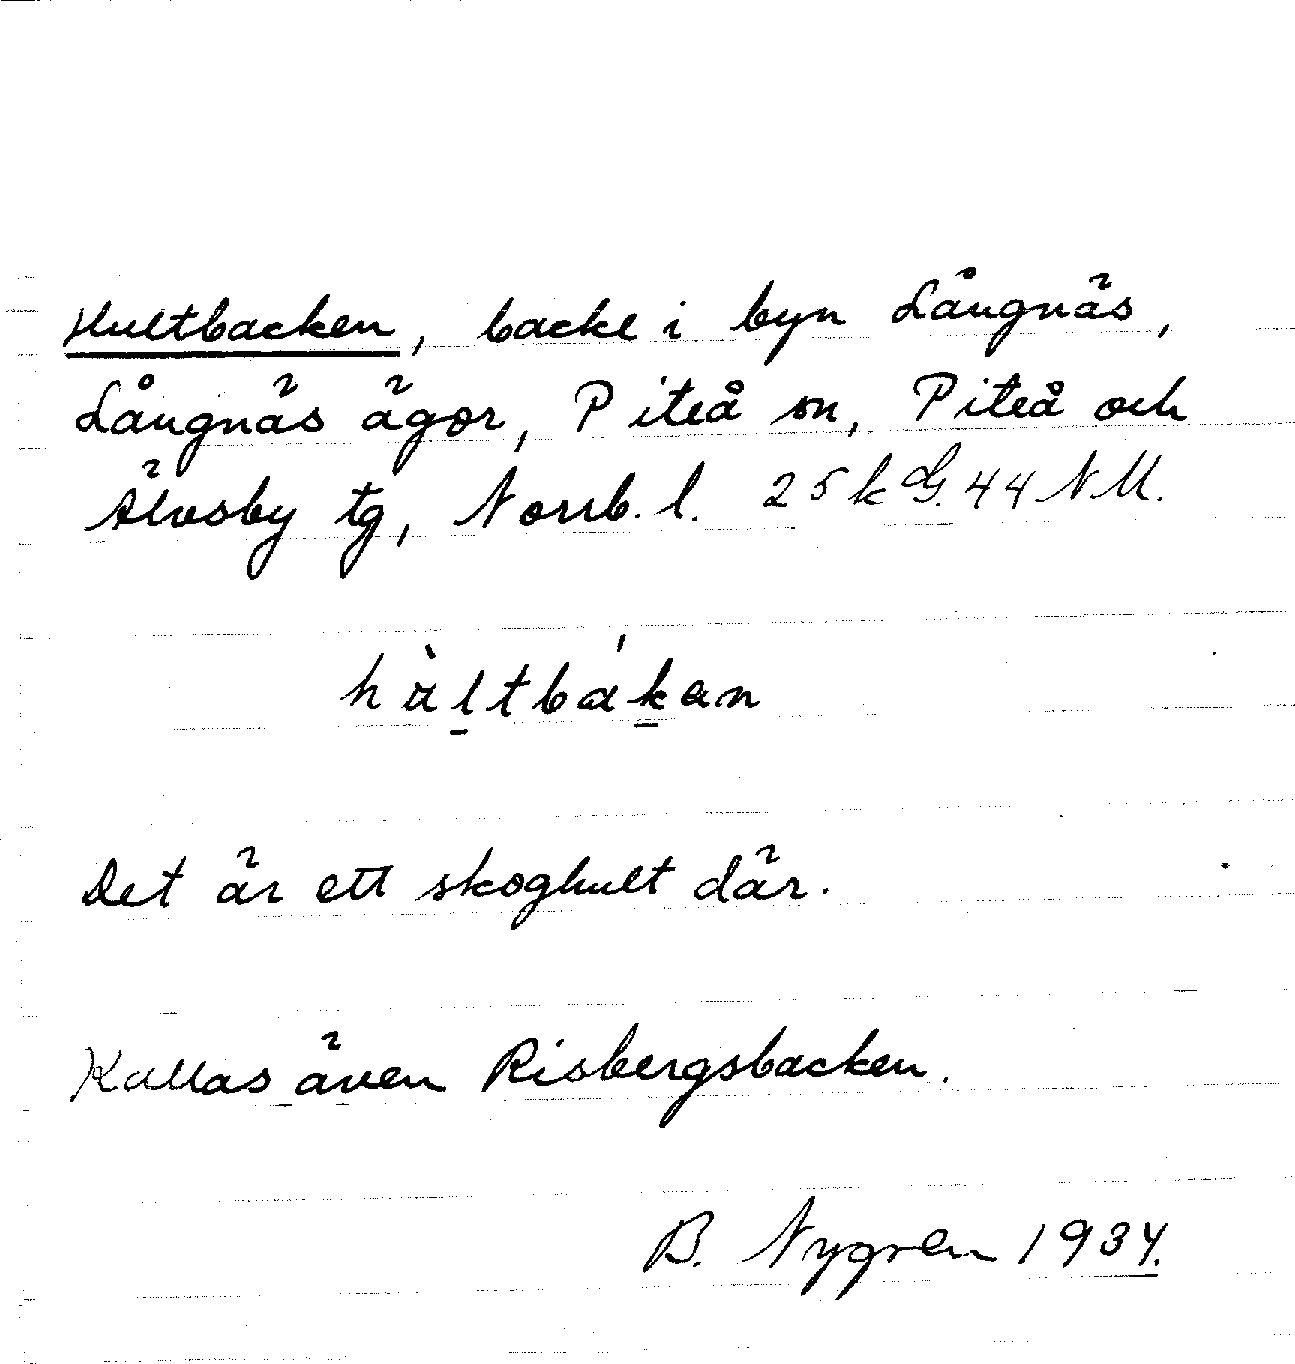 Hultbacken, backe i byn Långnäs,
Långnäs ägor, Piteå sn, Piteå och
Älvsby tg, Norrb. l. 25k G. 44 NM.
hàltbákan
Det är ett skoghult där.
Kallas även Risbergsbacken.
B. Nygren 1934.